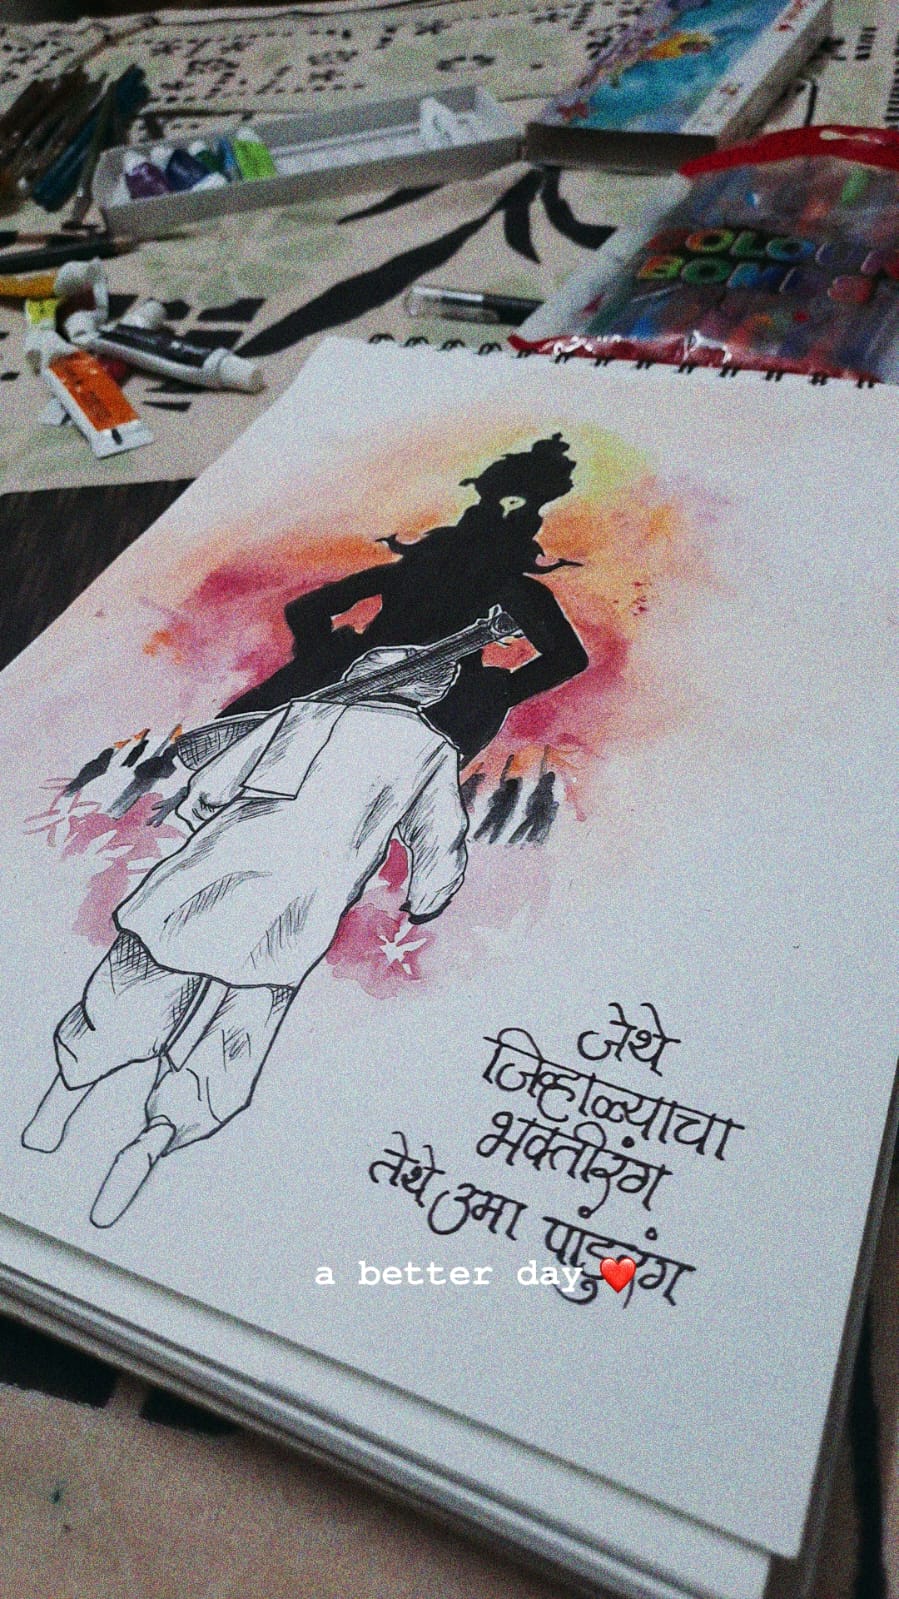 COLOUR
BOMB
जेथे
जिव्हाळ्याचा
भक्तीरंग
तेथे उमा पांडुरंग
a better day ❤️